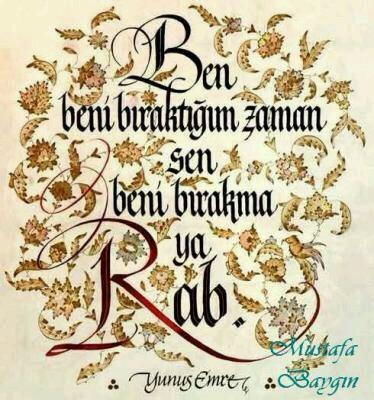 Ben
beni bıraktığım zaman
sen
beni bırakma
ya
Rab..
Yunus Emre
Mustafa
Baygın